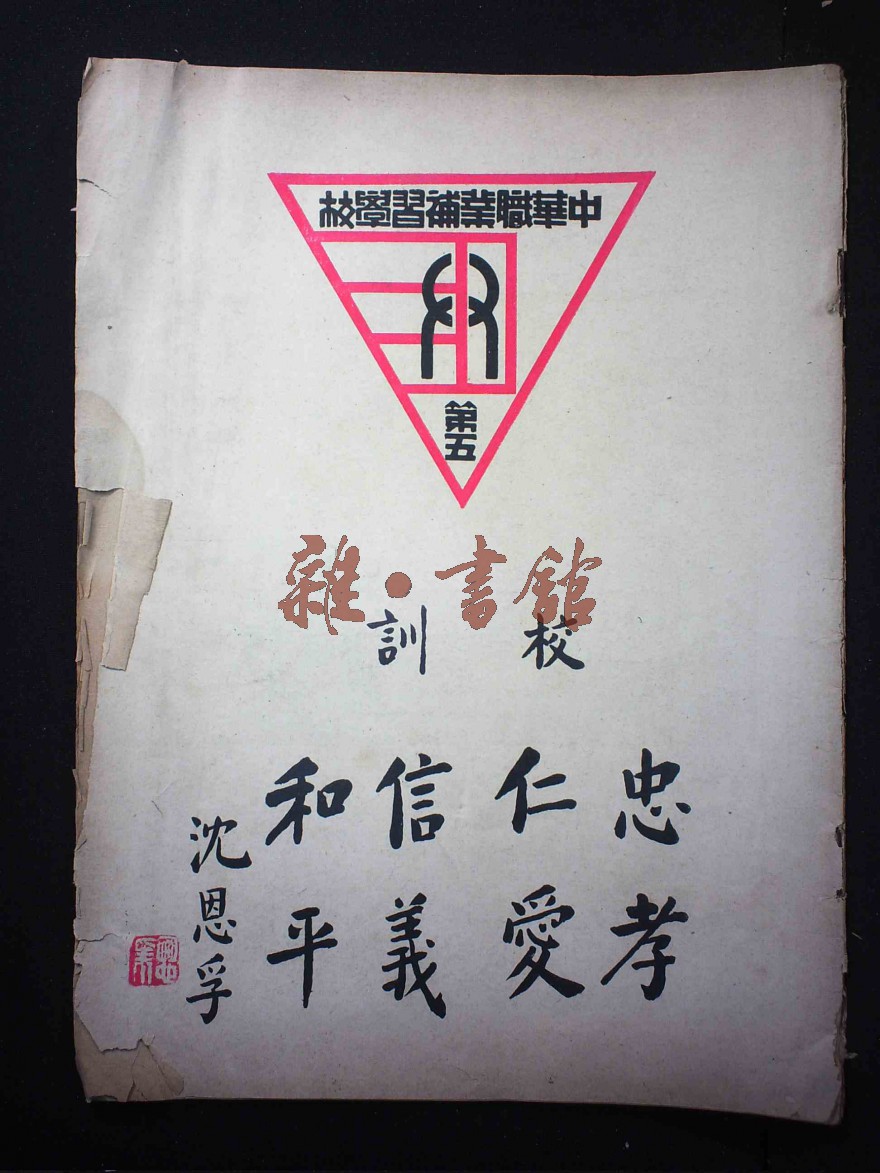 中華職業補習學校
第五
雜·書館
校訓
忠孝
仁愛
信義
和平
沈恩孚